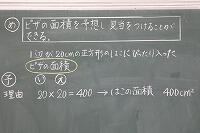 め ピザの面積を予想し見当をつけることが
できる。
1辺が20cmの正方形のはこにぴったり入った
ピザの面積
予 あ い え
理由 20×20=400 → はこの面積 400cm²